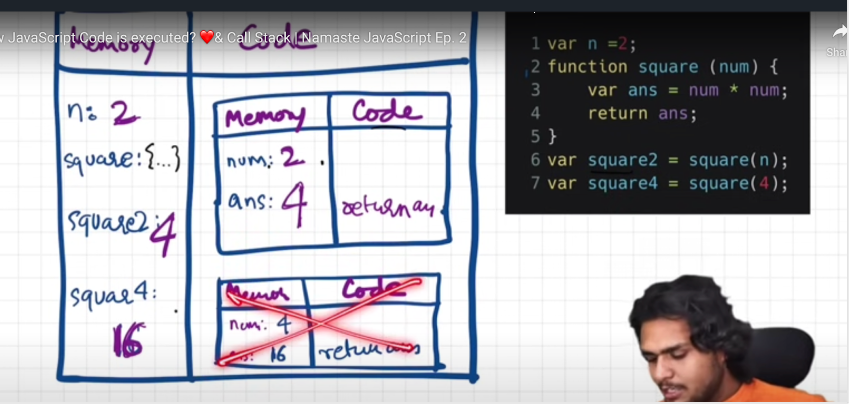 w JavaScript Code is executed? ❤️& Call Stack | Namaste JavaScript Ep. 2
Shar
Memory Code
n: 2
square: {...}
square2: 4
squar4:
16
Memory Code
num: 2
ans: 4
return an
Memor Code
num: 4
16 return ans
1 var n =2;
2 function square (num) {
3 var ans = num * num;
4 return ans;
5 }
6 var square2 = square(n);
7 var square4 = square(4);